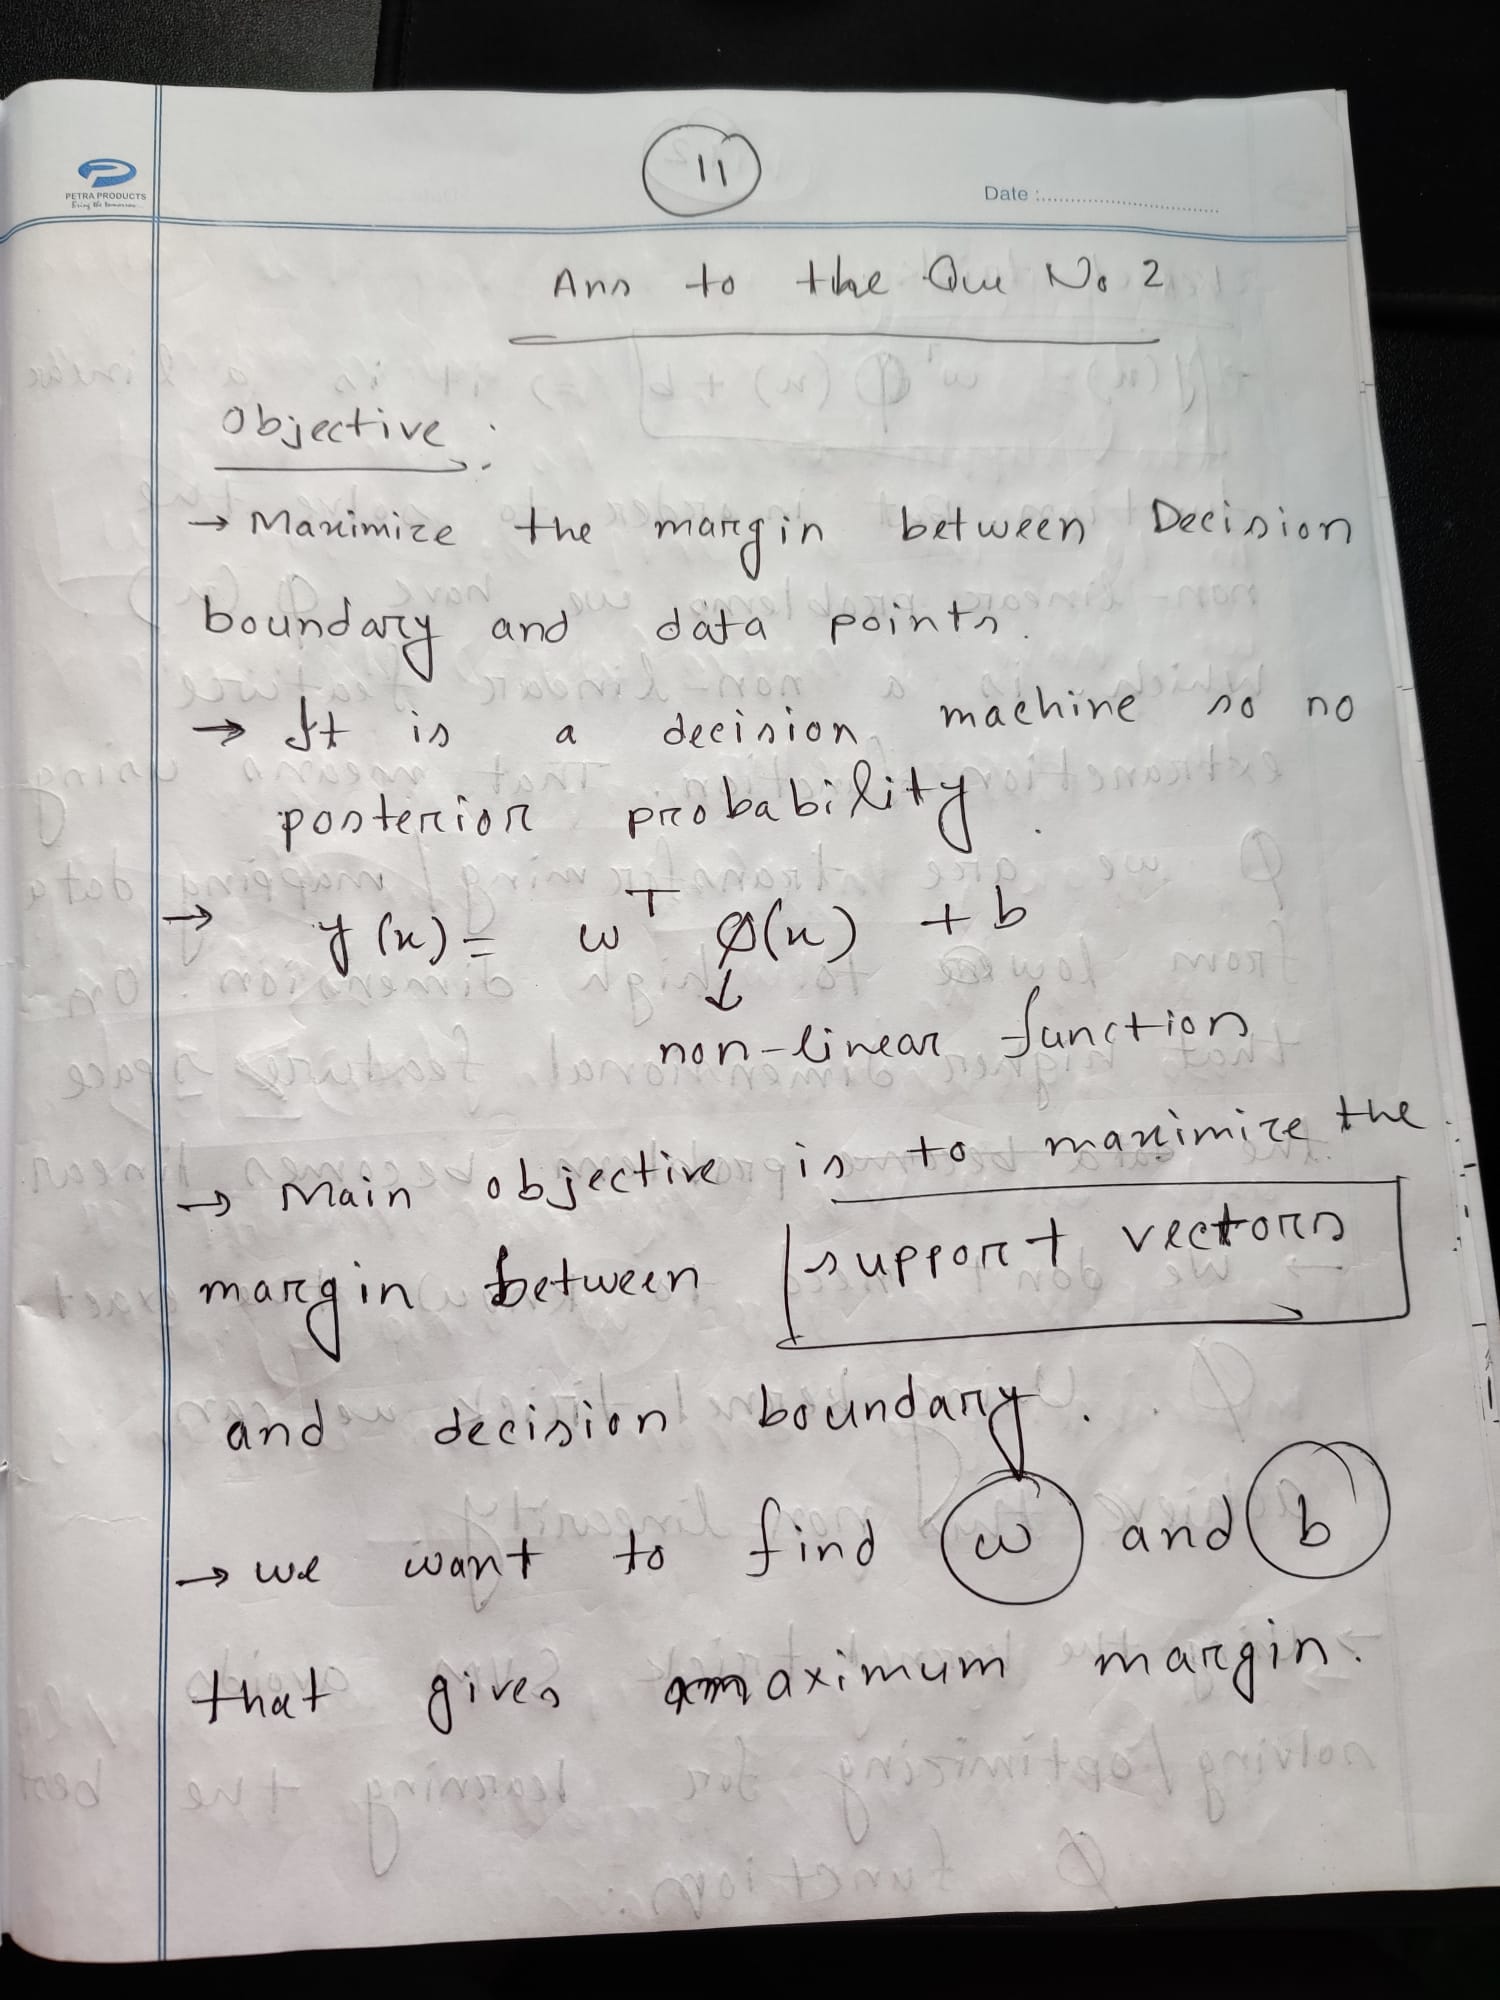 PETRA PRODUCTS
Bring the tomorrow...
11
Date :
Ans to the Que No 2
Objective :
→ Maximize the margin between Decision
boundary and data points.
→ It is a decision machine so no
posterior probability.
→ y(x) = w^T ϕ(x) + b
↓
non-linear function
→ Main objective is to maximize the
margin between support vectors
and decision boundary.
→ we want to find w and b
that gives maximum margin.